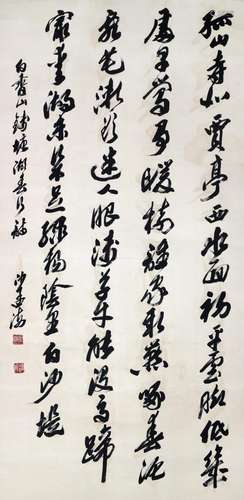 孤山寺北賈亭西水面初平雲腳低幾
處早鶯爭暖樹誰家新燕啄春泥
亂花漸欲迷人眼淺草才能沒馬蹄
最愛湖東行不足綠楊陰里白沙堤
白香山錢塘湖春行詩
沙孟海